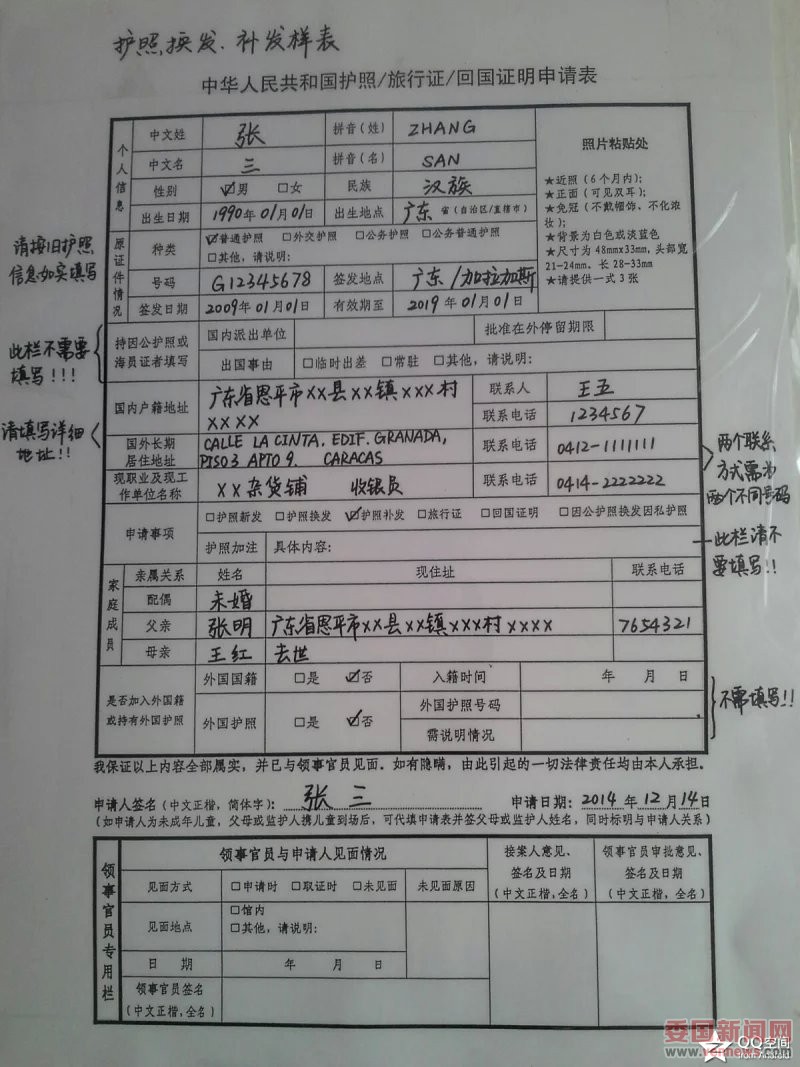 护照换发、补发样表
中华人民共和国护照/旅行证/回国证明申请表
个人信息
中文姓 张 拼音(姓) ZHANG
中文名 三 拼音(名) SAN
性别 ☑男 □女 民族 汉族
出生日期 1990年01月01日 出生地点 广东 省(自治区/直辖市)
照片粘贴处
★近照(6个月内);
★正面(可见双耳);
★免冠(不戴帽饰、不化浓
妆);
★背景为白色或淡蓝色
★尺寸为48mm×33mm,头部宽
21-24mm,长28-33mm
★请提供一式3张
请按旧护照
信息如实填写
原证件情况
种类 ☑普通护照 □外交护照 □公务护照 □公务普通护照
□其他,请说明:
号码 G12345678 签发地点 广东/加拉加斯
签发日期 2009年01月01日 有效期至 2019年01月01日
此栏不需要
填写!!!
持因公护照或
海员证者填写
国内派出单位 批准在外停留期限
出国事由 □临时出差 □常驻 □其他,请说明:
请填写详细
地址!!
国内户籍地址 广东省恩平市××县××镇×××村
××××
联系人 王五
联系电话 1234567
国外长期
居住地址
CALLE LA CINTA. EDIF. GRANADA,
PISO3 APTO 9. CARACAS
联系电话 0412-1111111
现职业及现工
作单位名称
××杂货铺 收银员 联系电话 0414-2222222
两个联系
方式需为
两个不同号码
申请事项 □护照新发 □护照换发 ☑护照补发 □旅行证 □回国证明 □因公护照换发因私护照
护照加注 具体内容:
此栏请不
要填写!!
家庭成员
亲属关系 姓名 现住址 联系电话
配偶 未婚
父亲 张明 广东省恩平市××县××镇×××村×××× 7654321
母亲 王红 去世
是否加入外国籍
或持有外国护照
外国国籍 □是 ☑否 入籍时间 年 月 日
外国护照 □是 ☑否 外国护照号码
需说明情况
不需填写!!
我保证以上内容全部属实,并已与领事官员见面。如有隐瞒,由此引起的一切法律责任均由本人承担。
申请人签名(中文正楷,简体字): 张三 申请日期:2014年12月14日
(如申请人为未成年儿童,父母或监护人携儿童到场后,可代填申请表并签父母或监护人姓名,同时标明与申请人关系)
领事官员专用栏
领事官员与申请人见面情况
接案人意见、
签名及日期
(中文正楷,全名)
领事官员审批意见、
签名及日期
(中文正楷,全名)
见面方式 □申请时 □取证时 □未见面 未见面原因
见面地点 □馆内
□其他,请说明:
日 期 年 月 日
领事官员签名
(中文正楷,全名)
委国新闻网
www.vennews.com
QQ空间
from Android